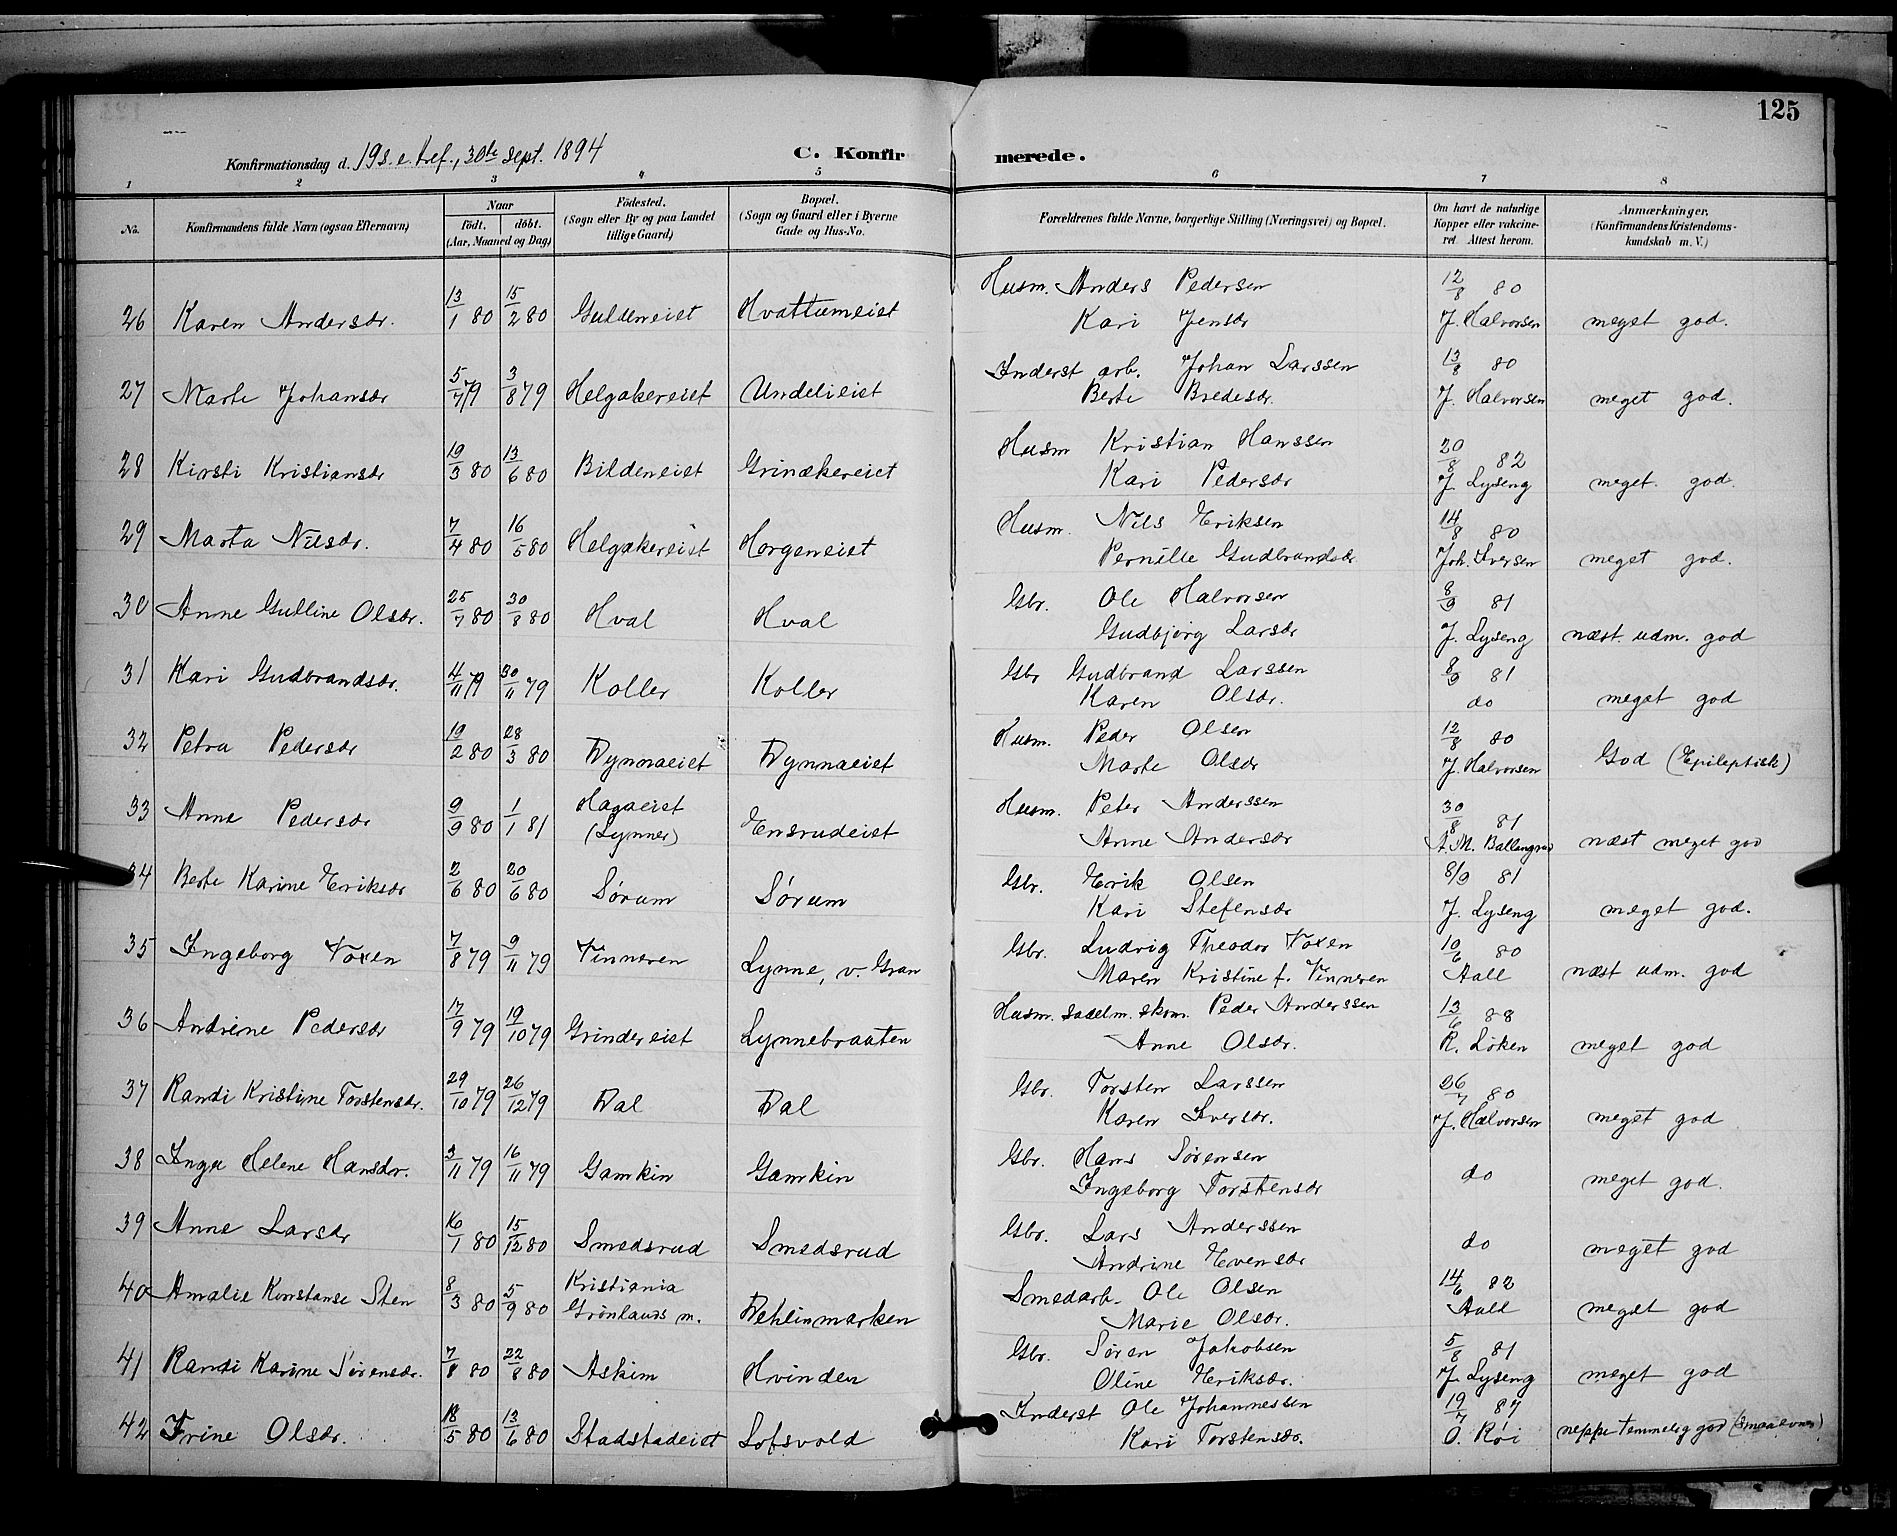 125
Konfirmationsdag d. 19 s. e. tref., 30te Sept. 1894
C. Konfirmerede.
1 2 3 4 5 6 7 8
No.
Konfirmandens fulde Navn (ogsaa Efternavn)
Naar
født. døbt.
(Aar, Maaned og Dag)
Fødested.
(Sogn eller By og paa Landet
tillige Gaard)
Bopæl.
(Sogn og Gaard eller i Byerne
Gade og Hus-No.
Forældrenes fulde Navne, borgerlige Stilling (Næringsvei) og Bopæl.
Om havt de naturlige
Kopper eller vakcine-
ret. Attest herom.
Anmærkninger,
(Konfirmandens Kristendoms-
kundskab m. V.)
26 Karen Andersdr. 13/1 80 15/2 80 Guldeneiet Hvattumeiet Husm. Anders Pedersen 12/8 80
Kari Jensdr J. Halvorsen meget god.
27 Marte Johansdr 5/7 79 3/8 79 Helgakereiet Undelieiet Inderst arb. Johan Larssen 13/8 80
Berte Bredesdr. J. Halvorsen meget god.
28 Kirsti Kristiansdr 19/3 80 13/6 80 Bildeneiet Grinakereiet Husm Kristian Hanssen 20/8 82
Kari Pedersdr J. Lyseng meget god.
29 Marta Nilsdr. 7/4 80 16/5 80 Helgakereiet Horgeneiet Husm. Nils Eriksen 14/8 80
Pernille Gudbrandsdr Joh. Iversen meget god.
30 Anne Gulline Olsdr. 25/7 80 30/8 80 Hval Hval Gbr. Ole Halvorsen 8/9 81
Gudbjørg Larsdr J. Lyseng næst. udm. god
31 Kari Gudbrandsdr. 4/11 79 30/11 79 Koller Koller Gbr Gudbrand Larssen 8/9 81
Karen Olsdr. do meget god
32 Petra Pedersdr 19/2 80 28/3 80 Dynnaeiet Dynnaeiet Husm. Peder Olsen 12/8 80
Marte Olsdr J. Halvorsen God (Epileptisk)
33 Anne Pedersdr 9/9 80 1/1 81 Hagaeiet (Lynner) Ensrudeiet Husm. Peter Anderssen 30/8 81
Anne Andersdr A. M. Ballangrud næst meget god
34 Berte Karine Eriksdr 2/6 80 20/6 80 Sørum Sørum Gbr. Erik Olsen 8/9 81
Kari Stefensdr J. Lyseng meget god.
35 Ingeborg Voxen 7/8 79 9/11 79 Vinneren Lynne, v. Gran Gbr. Ludvig Theodor Voxen 10/6 80
Maren Kristine f. Vinneren Aall næst udm. god
36 Andrine Pedersdr 17/9 79 19/10 79 Grindereiet Lynnebraaten Husm. sadelm. skom. Peder Anderssen 13/6 88
Anne Olsdr. R. Løken meget god
37 Randi Kristine Torstensdr. 29/10 79 26/12 79 Dal Dal Gbr. Torsten Larssen 26/7 80
Karen Iversdr. J. Halvorsen meget god
38 Inga Helene Hansdr. 3/11 79 16/11 79 Gamkin Gamkin Gbr. Hans Sørensen
Ingeborg Torstensdr do meget god.
39 Anne Larsdr 16/1 80 15/12 80 Smedsrud Smedsrud Gbr. Lars Anderssen
Andrine Evensdr do meget god
40 Amalie Konstanse Sten 8/3 80 5/9 80 Kristiania Grønlands m. Dehlinmarken Smedarb. Ole Olsen 14/6 82
Marie Olsdr. Aall meget god
41 Randi Karine Sørensdr. 7/8 80 22/8 80 Askim Hvinden Gbr. Søren Jakobsen 5/8 81
Oline Eriksdr. J. Lyseng meget god
42 Trine Olsdr. 18/5 80 13/6 80 Stadstadeiet Lofsvold Inderst Ole Johannessen 19/7 87
Kari Torstensdr. O. Røi neppe temmelig god